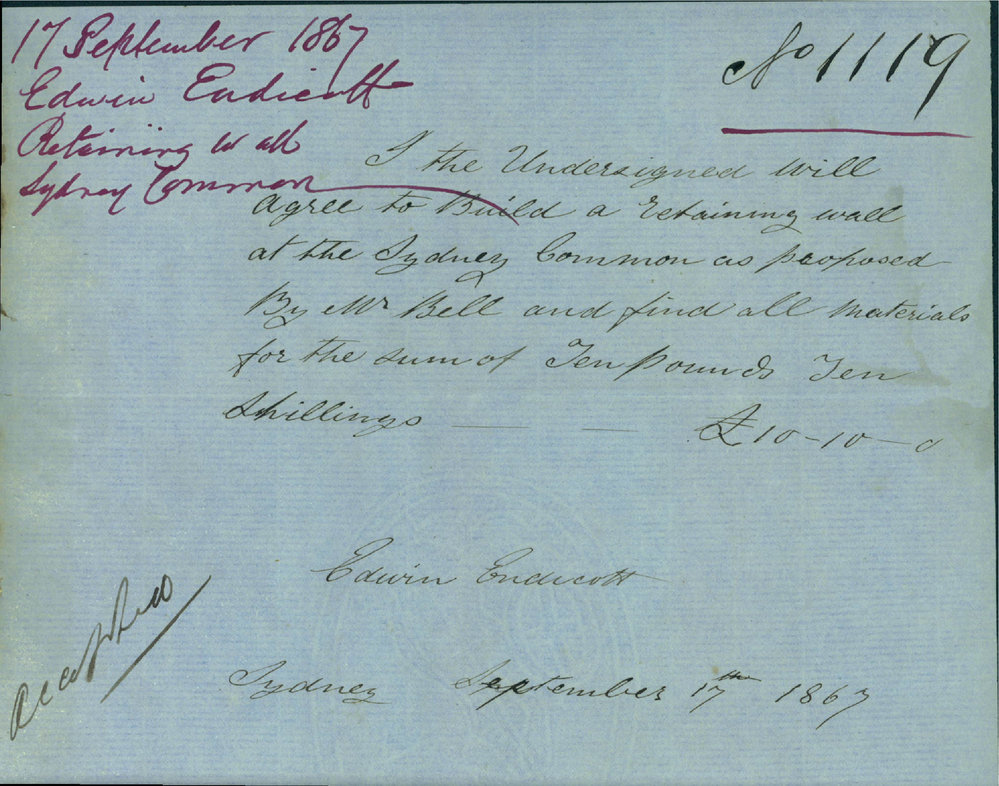 17 September 1867
Edwin Endicott
Retaining Wall
Sydney Common
No 1119
I the Undersigned will
agree to Build a retaining wall
at the Sydney Common as proposed
By Mr Bell and find all Materials
for the sum of Ten pounds Ten
Shillings — — £10-10-0
Edwin Endicott
Sydney September 17th 1867
Accepted